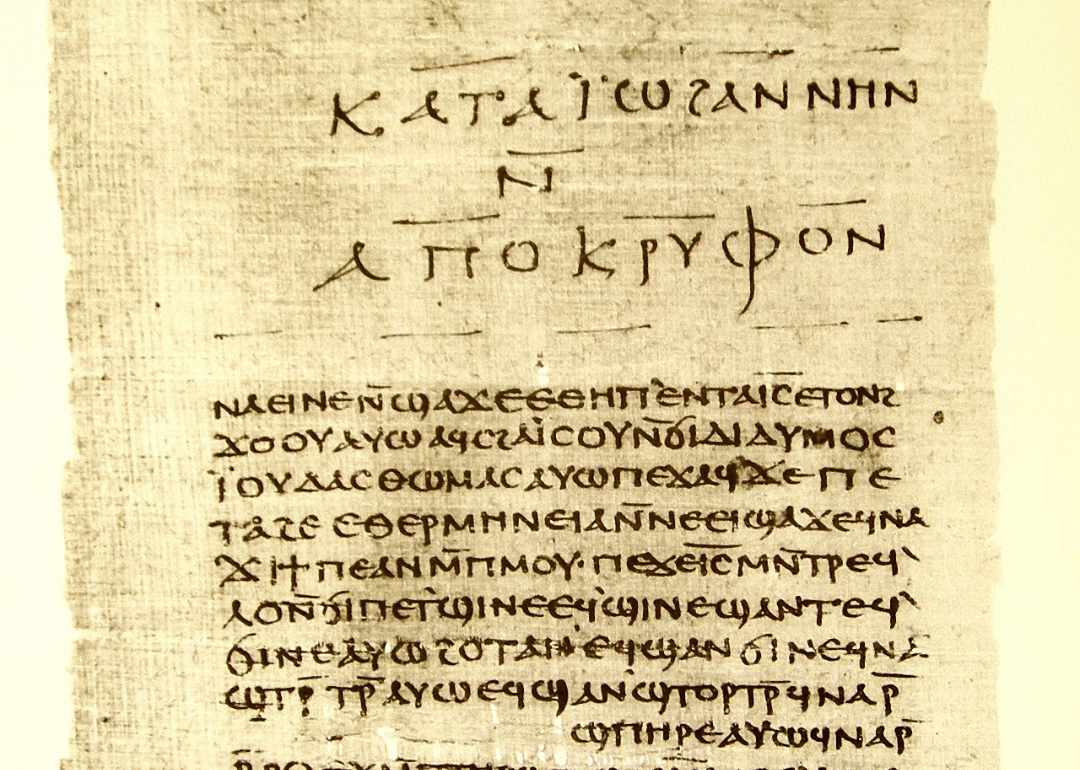 ⲔⲀⲦⲀ ⲒⲰϨⲀⲚⲚⲎⲚ
Ⲛ̄
ⲀⲠⲞⲔⲢⲨⲪⲞⲚ
ⲚⲀⲈⲒⲚⲈⲚ̄ϢⲀϪⲈⲈⲐⲎⲠ`ⲈⲚⲦⲀⲒ̅Ⲥ̅ⲈⲦⲞⲚϨ
ϪⲞⲞⲨⲀⲨⲰⲀϤⲤϨⲀⲒ̈ⲤⲞⲨⲚ̄ϬⲒⲆⲒⲆⲨⲘⲞⲤ
Ⲓ̈ⲞⲨⲆⲀⲤⲐⲰⲘⲀⲤⲀⲨⲰⲠⲈϪⲀϤϪⲈⲠⲈ
ⲦⲀϨⲈⲈⲐⲈⲢⲘⲎⲚⲈⲒⲀⲚ̄ⲚⲈⲈⲒϢⲀϪⲈϤⲚⲀ
ϪⲒϮⲠⲈⲀⲚⲘ̄ⲠⲘⲞⲨ·ⲠⲈϪⲈⲒ̅Ⲥ̅ⲘⲚ̄ⲦⲢⲈϤ`
ⲖⲞⲚ̄ϬⲒⲠⲈⲦ`ϢⲒⲚⲈⲈϤ`ϢⲒⲚⲈϢⲀⲚⲦⲈϤ`
ϬⲒⲚⲈⲀⲨⲰϨⲞⲦⲀⲚ`ⲈϤϢⲀⲚϬⲒⲚⲈϤⲚⲀ
ϢⲦⲢ̄ⲦⲢ̄ⲀⲨⲰⲈϤϢⲀⲚ`ϢⲦⲞⲢⲦⲢ̄ϤⲚⲀⲢ̄
ϢⲠⲎⲢⲈⲀⲨⲰϤⲚⲀⲢ̄